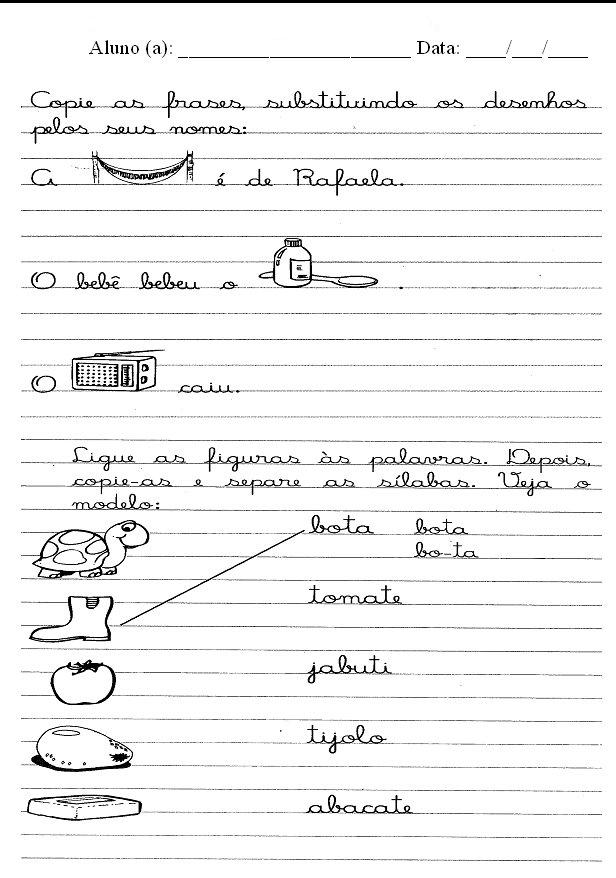 Aluno (a): ________________________ Data: ____/___/____
Copie as frases, substituindo os desenhos
pelos seus nomes:
A é de Rafaela.
O bebê bebeu o .
O caiu.
Ligue as figuras às palavras. Depois,
copie-as e separe as sílabas. Veja o
modelo:
bota bota
bo-ta
tomate
jabuti
tijolo
abacate